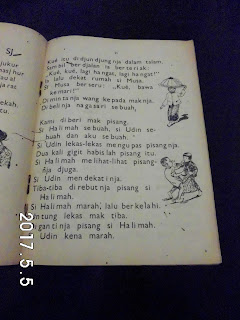 Kué itu didjundjungnja dalam talam.
Sambil berdjalan ia berteriak:
"Kué, kué, lagi hangat, lagi hangat!"
Ia lalu dekat rumah si Musa.
Si Musa berseru: "Kué, bawa
kemari!"
Dimintanja wang kepada maknja.
Dibelinja nagasari sebuah,
Kami diberi mak pisang.
Si Halimah sebuah, si Udin se-
buah dan aku sebuah."
Si Udin lekas-lekas mengupas pisangnja.
Dua kali gigit habislah pisang itu.
Si Halimah melihat-lihat pisang-
nja djuga.
Si Udin mendekatinja.
Tiba-tiba direbutnja pisang si
Halimah.
Si Halimah marah, lalu berkelahi.
Untung lekas mak tiba.
Digantinja pisang si Halimah.
Si Udin kena marah.
2017.5.5